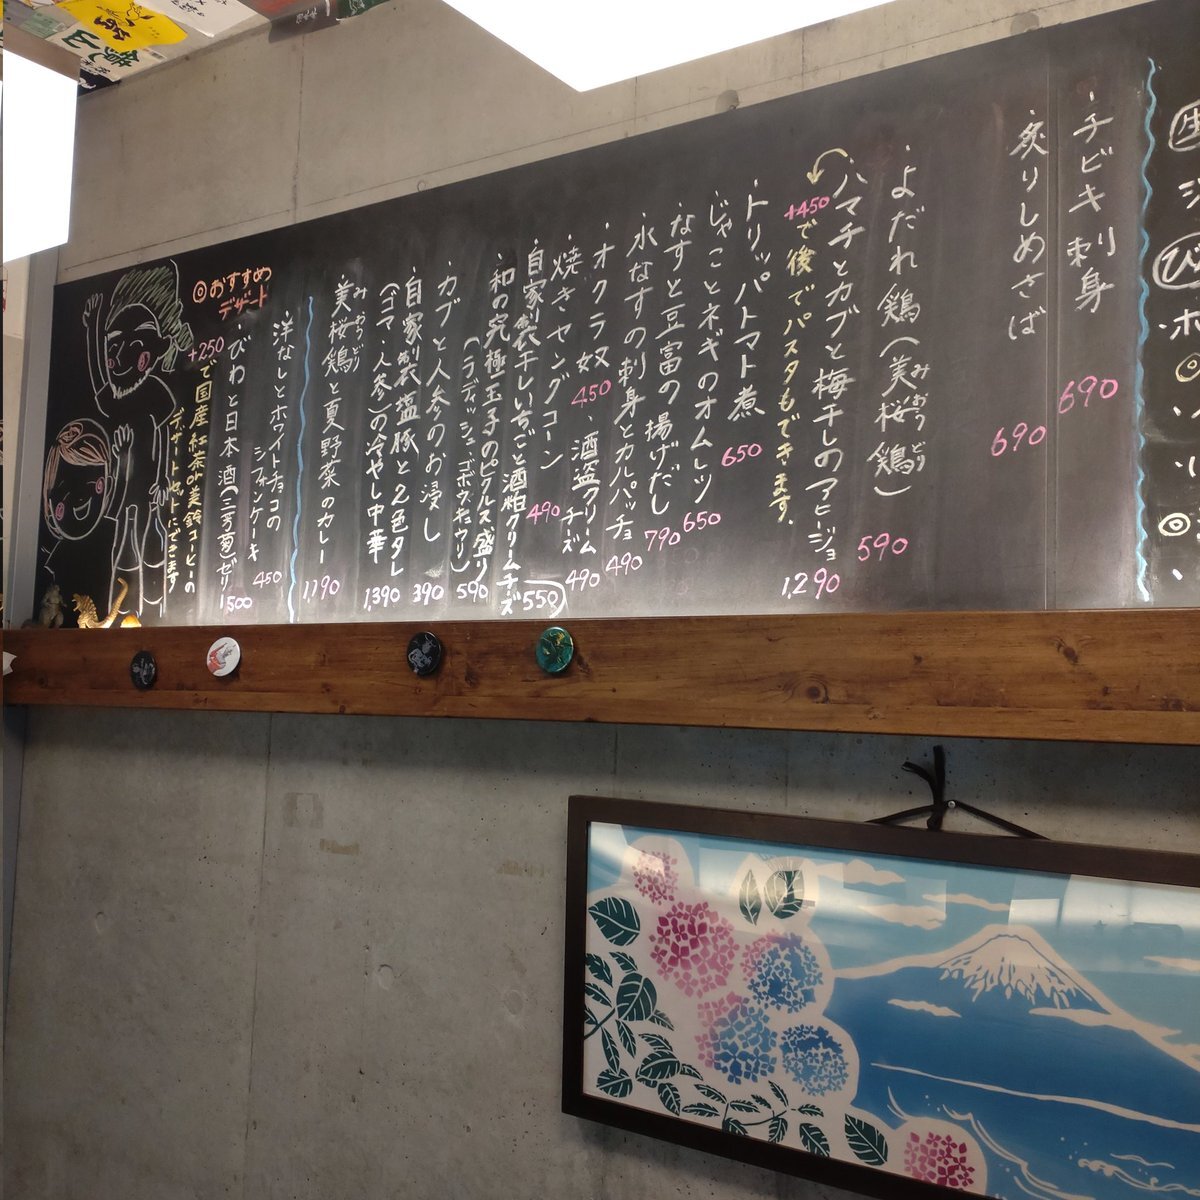 ・チビキ刺身 690
・炙りしめさば 690
・よだれ鶏(美桜鶏) 590
みおうどり
・ハマチとカブと梅干しのアヒージョ 1,290
+450で後でパスタもできます。
・トリッパトマト煮 650
・じゃことネギのオムレツ 650
・なすと豆富の揚げだし 790
・水なすの刺身とカルパッチョ 490
・オクラ奴 450
・酒盗クリームチーズ 490
・焼きヤングコーン 490
・自家製干しいちごと酒粕クリームチーズ 550
・和の究極玉子のピクルス盛り 590
(ラディッシュ、ゴボウ、キュウリ)
・カブと人参のお浸し 390
・自家製塩豚と2色タレ
(ゴマ・人参)の冷やし中華 1,390
みおうどり
・美桜鶏と夏野菜のカレー 1,190
◎おすすめ
デザート
・洋なしとホワイトチョコの
シフォンケーキ 450
・びわと日本酒(三芳菊)ゼリー 500
+250で国産紅茶or美鈴コーヒーの
デザートセットにできます